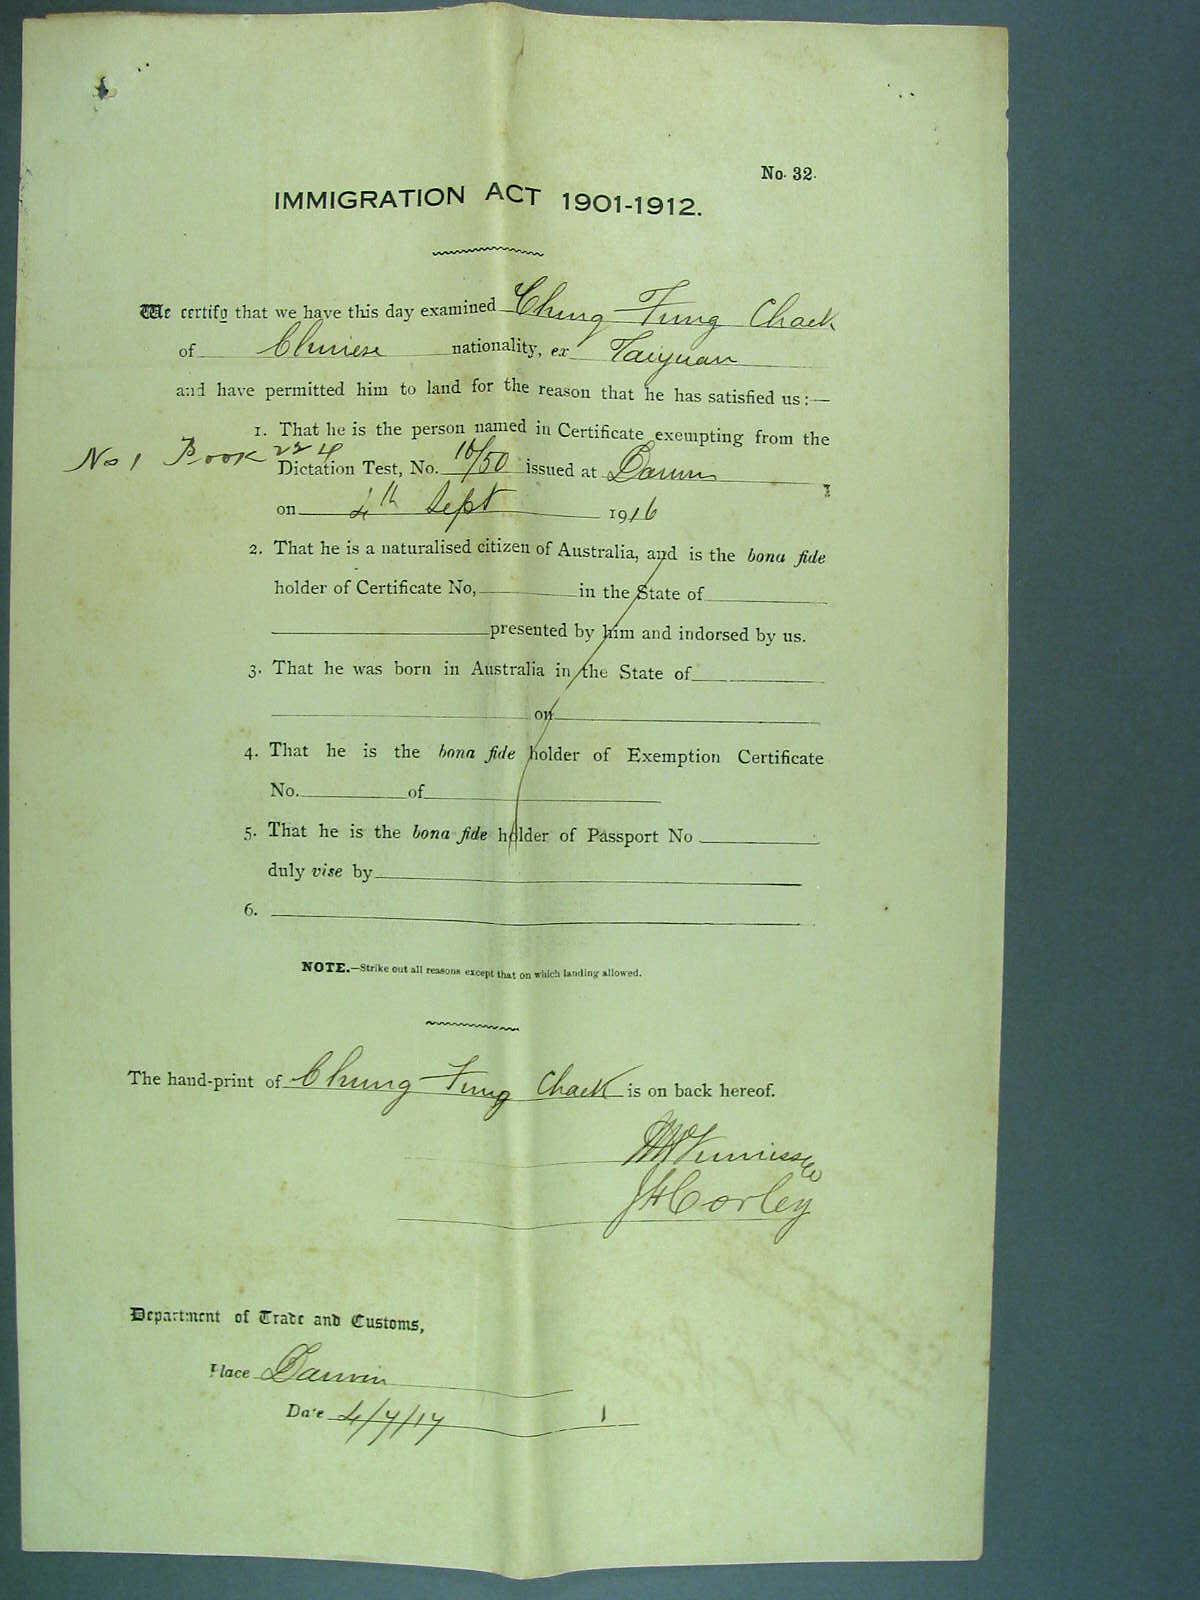 No. 32.
IMMIGRATION ACT 1901-1912.
We certify that we have this day examined Chung Fung Chack
of Chinese nationality, ex Taiyuan
and have permitted him to land for the reason that he has satisfied us:—
1. That he is the person named in Certificate exempting from the
No 1 Book 224 Dictation Test, No. 10/50 issued at Darwin
on 4th Sept 1916
2. That he is a naturalised citizen of Australia, and is the bona fide
holder of Certificate No, in the State of
presented by him and indorsed by us.
3. That he was born in Australia in the State of
on
4. That he is the bona fide holder of Exemption Certificate
No. of
5. That he is the bona fide holder of Passport No
duly vise by
6.
NOTE.—Strike out all reasons except that on which landing allowed.
The hand-print of Chung Fung Chack is on back hereof.
JHCorley
Department of Trade and Customs,
Place Darwin
Date 4/7/17